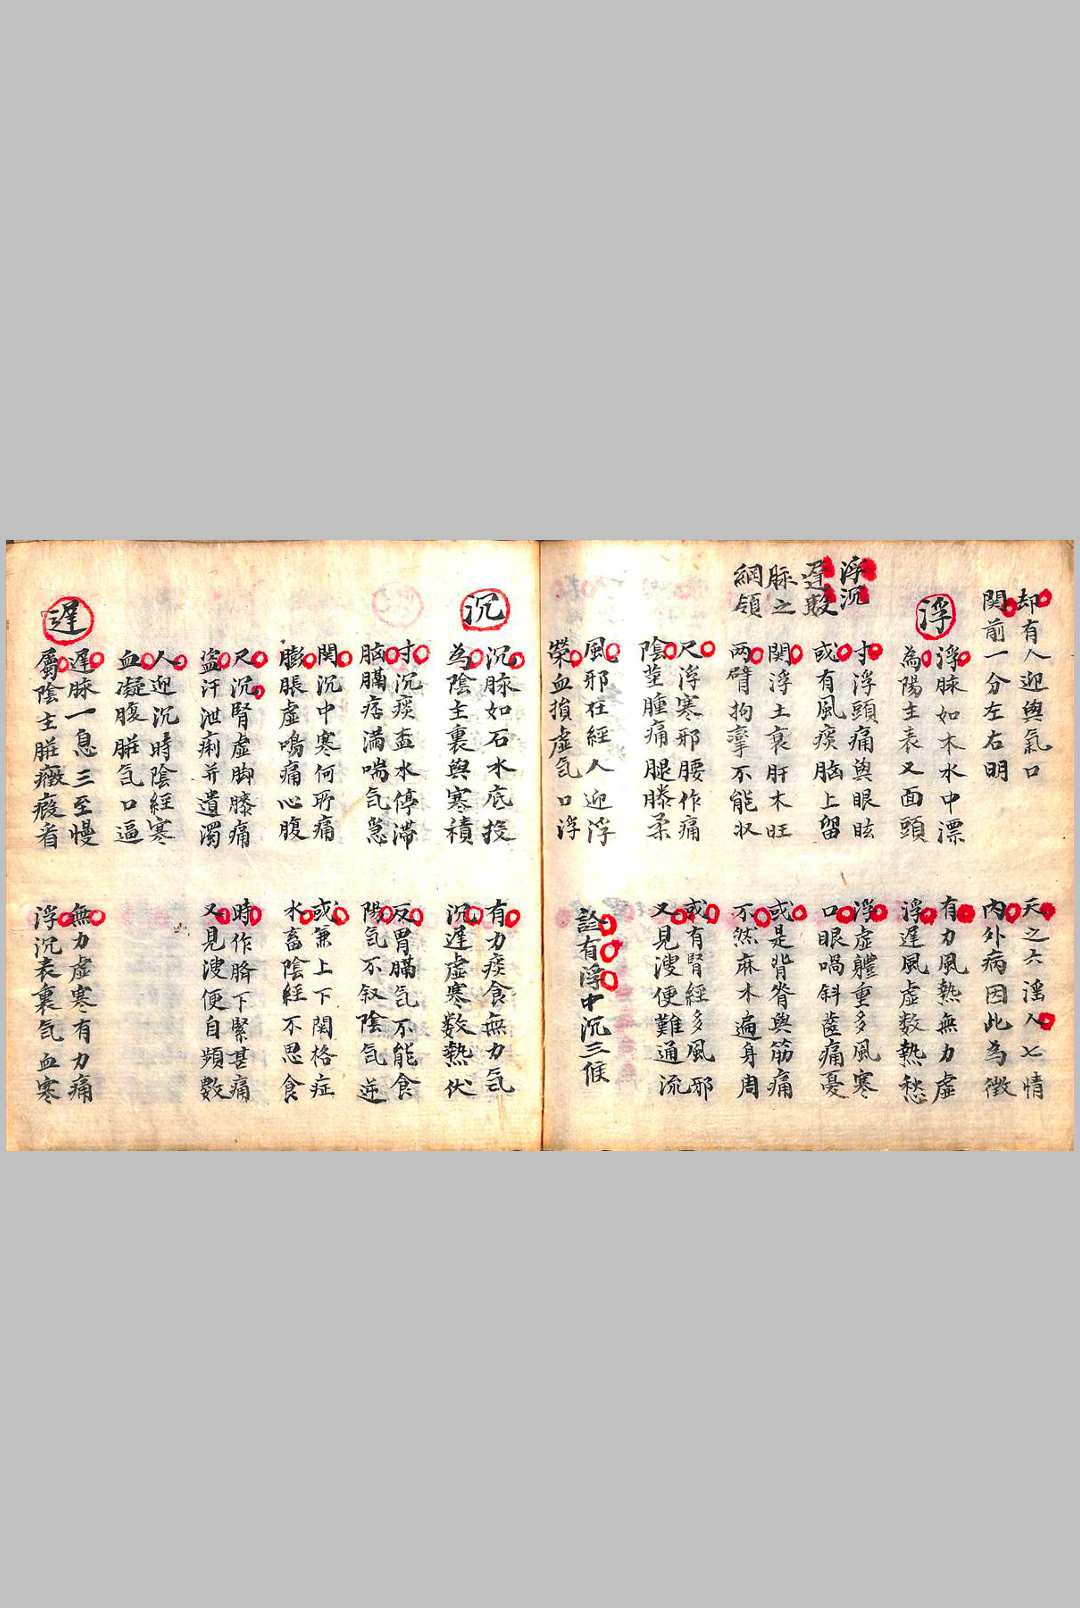 却有人迎與氣口
関前一分左右明
天之六淫人七情
內外病因此為徵
浮
浮脉如木水中漂
為陽主表又面頭
有力風熱無力虛
浮遲風虛数熱愁
浮沉
遲数
脉之
綱領
寸浮頭痛與眼眩
或有風痰脑上留
浮虛軆重多風寒
口眼喎斜蓝痛憂
関浮土衰肝木旺
两臂拘攣不能収
或是背脊與筋痛
不然麻木遍身周
尺浮寒邪腰作痛
陰莖腫痛腿膝柔
或有腎經多風邪
又見溲便難通流
風邪在經人迎浮
榮血損虛気口浮
診有浮中沉三候
沉
沉脉如石水底投
為陰主裏與寒積
有力痰食無力気
沉遲虛寒数熱伏
寸沉痰盃水停滞
脑膈痞満喘気急
反胃膈气不能食
陽気不叙陰気逆
関沉中寒何所痛
膨脹虛鳴痛心腹
或兼上下関格症
水畜陰經不思食
尺沉腎虛脚膝痛
盗汗泄痢并遺濁
時作臍下緊甚痛
又見溲便自頻數
人迎沉時陰經寒
血凝腹脏気口逼
遲
遲脉一息三至慢
屬陰主脏癥瘕看
無力虛寒有力痛
浮沉表裏気血寒